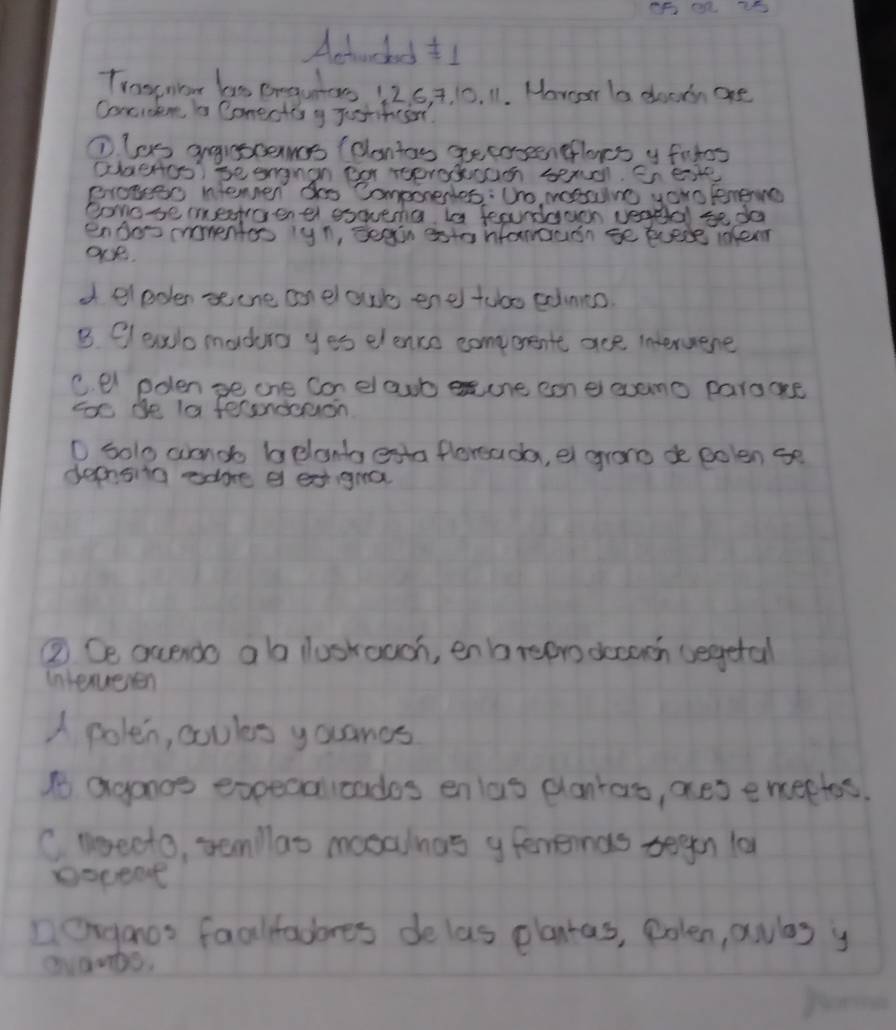 05 02 25
Actividad #1
Trascribir las preguntas 1,2,6,7,10,11. Marcar la doción que
Considere la Correcta y justificar.
① Las angiospermas (plantas que poseen flores y frutos
cubiertos) se originan por reproducción sexual. En este
proceso intervien dos componentes: Uno masculino y otro femenino
como se muestra en el esquema. la fecundación vegetal se da
en dos momentos 1 y n, según esta información se puede inferir
que.
A el polen se une con el ovulo en el tubo polinico.
B. El ovulo madura y es el enico componente que interviene
C. el polen se une con el ovulo se une con el ovario para que
se de la fecundación
D Solo cuando la planta esta floreada, el grano de polen se
deposita sobre el estigma
② De acuerdo a la ilustración, en la reproducción vegetal
intervienen
A polen, ovulos y ovarios
B organos especializados en las plantas, aves e insectos.
C insecto, semillas masculinas y femeninas segun la
especie
D. Organos facilitadores de las plantas, polen, ovulos y
ovarios.